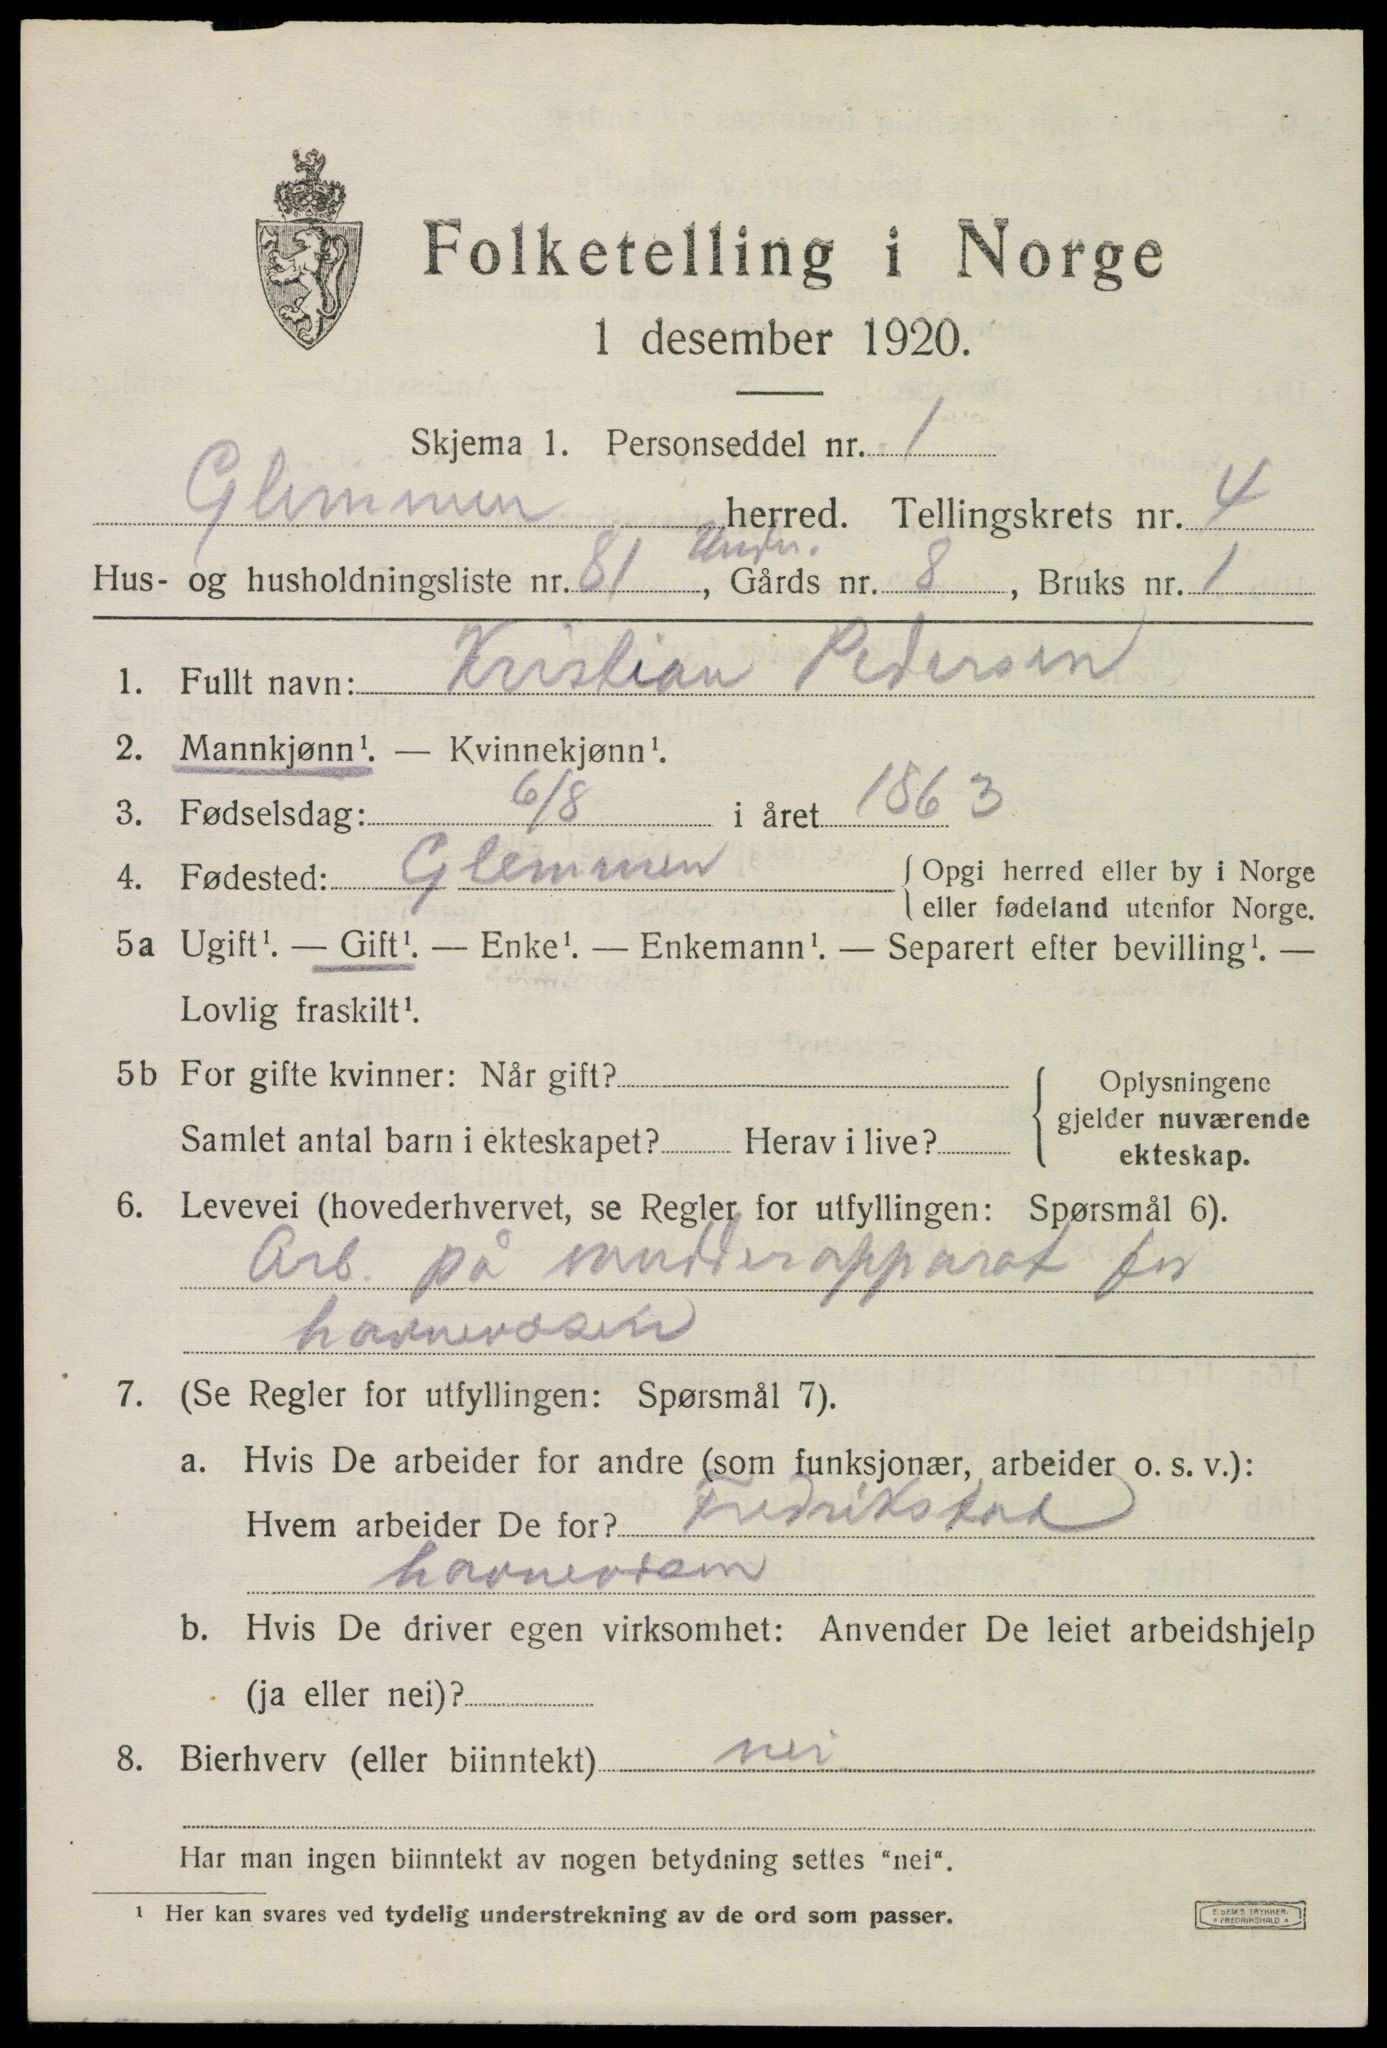 Folketelling i Norge
1 desember 1920.
Skjema 1. Personseddel nr. 1
Glemmen herred. Tellingskrets nr. 4
Hus- og husholdningsliste nr. 81, Gårds nr. 8, Bruks nr. 1
1. Fullt navn: Kristian Pedersen
2. Mannkjønn¹. — Kvinnekjønn¹.
3. Fødselsdag: 6/8 i året 1863
4. Fødested: Glemmen { Opgi herred eller by i Norge
eller fødeland utenfor Norge.
5a Ugift¹. — Gift¹. — Enke¹. — Enkemann¹. — Separert efter bevilling¹. —
Lovlig fraskilt¹.
5b For gifte kvinner: Når gift? { Oplysningene
gjelder nuværende
Samlet antal barn i ekteskapet? Herav i live? ekteskap.
6. Levevei (hovederhvervet, se Regler for utfyllingen: Spørsmål 6).
Arb. på mudderapparat for
havnevæsen
7. (Se Regler for utfyllingen: Spørsmål 7).
a. Hvis De arbeider for andre (som funksjonær, arbeider o. s. v.):
Hvem arbeider De for? Fredrikstad
havnevæsen
b. Hvis De driver egen virksomhet: Anvender De leiet arbeidshjelp
(ja eller nei)?
8. Bierhverv (eller biinntekt) nei
Har man ingen biinntekt av nogen betydning settes "nei".
¹ Her kan svares ved tydelig understrekning av de ord som passer.
E. SEM'S TRYKKERI
* FREDRIKSHALD *